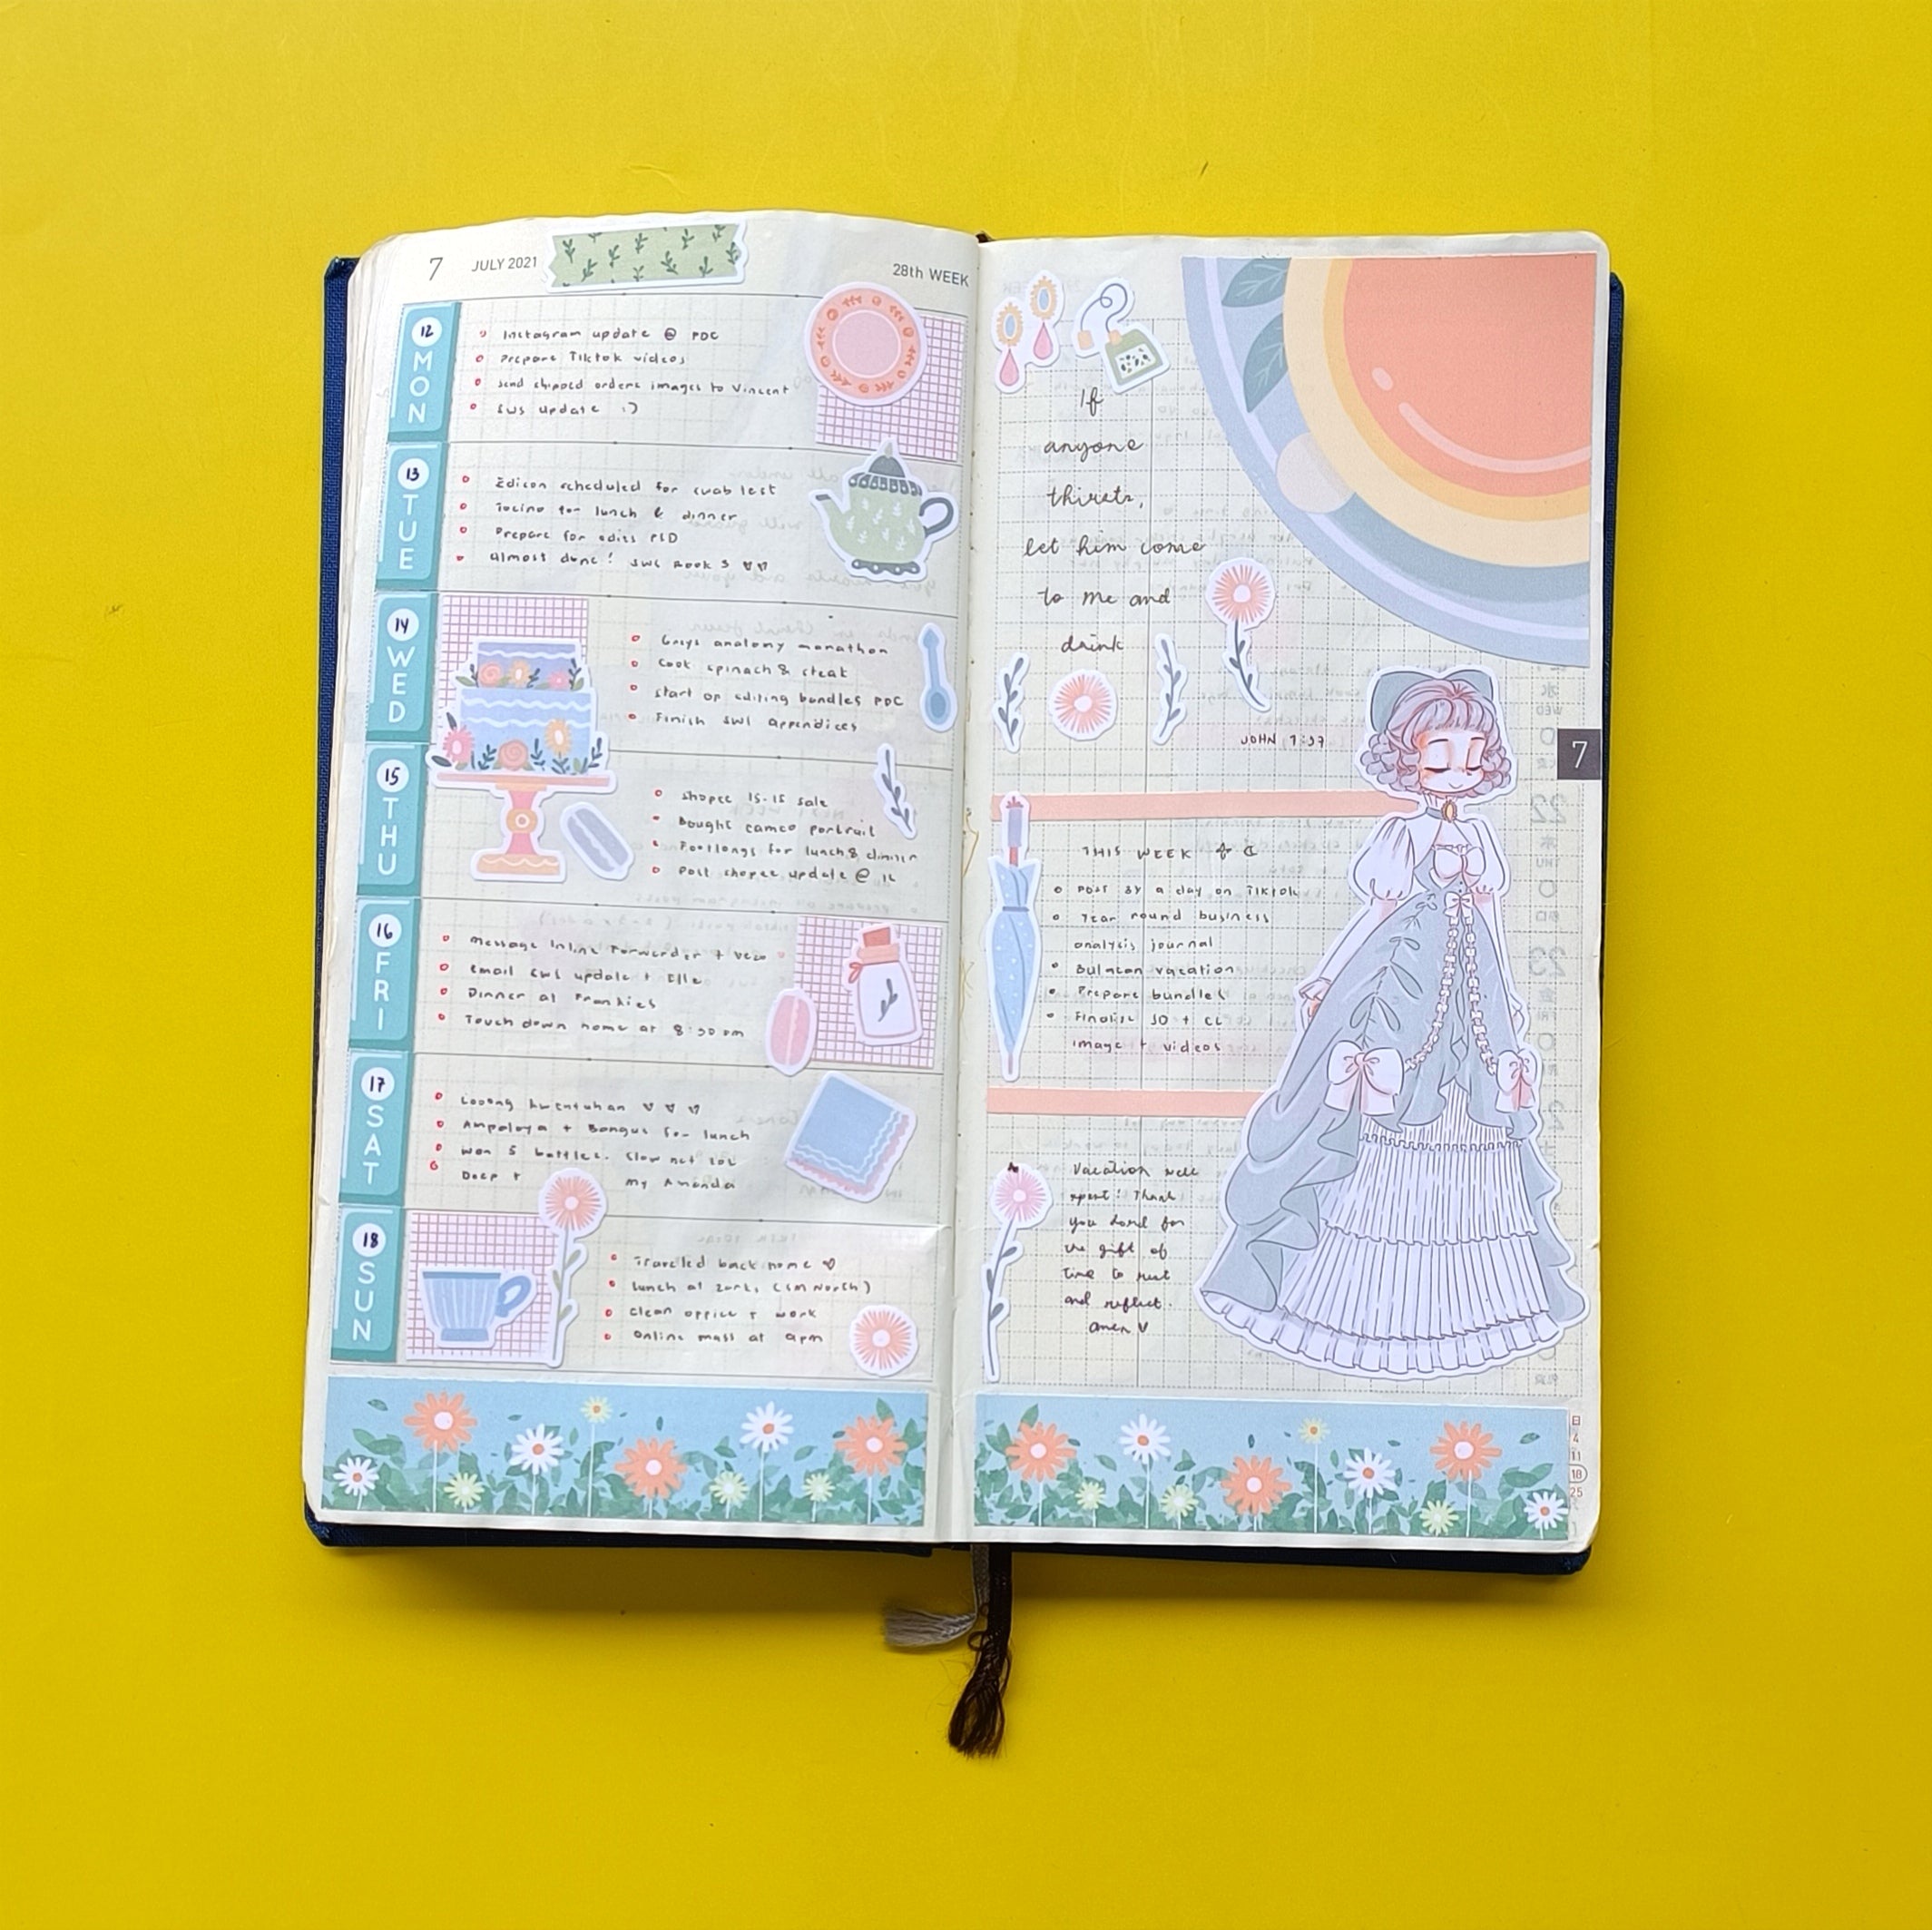 7 JULY 2021
28th WEEK
12 MON
Instagram update @ PDC
Prepare Tiktok videos
send shipped orders images to Vincent
SWS update :)
13 TUE
Edison scheduled for swab test
Tocino for lunch & dinner
Prepare for edits
Almost done! SWS Book 3 ♡♡
14 WED
Greys anatomy marathon
Cook spinach & steak
start of editing bundles PDC
Finish SWS appendices
15 THU
shopee 15-15 sale
Bought cameo portrait
Footlongs for lunch & dinner
Post shopee update @ 12
16 FRI
Message Inline Forwarder +
Email SWS update + Elle
Dinner at Frankies
Touch down home at 8:30 pm
17 SAT
Looong kwentuhan ♡ ♡ ♡
Ampalaya + Bangus for lunch
won 5 battles. Slow net lol
Deep + my Amanda
18 SUN
Traveled back home ♡
lunch at (SM North)
Clean office + work
Online mass at 9pm
If
anyone
thirsts,
let him come
to me and
drink
JOHN 7:37
7
THIS WEEK
Post 3x a day on Tiktok
Year round business
analysis journal
Bulacan vacation
Prepare bundles
Finalize
image + videos
Vacation well
spent! Thank
you Lord for
the gift of
time to rest
and reflect.
amen ♡
日
4
11
18
25